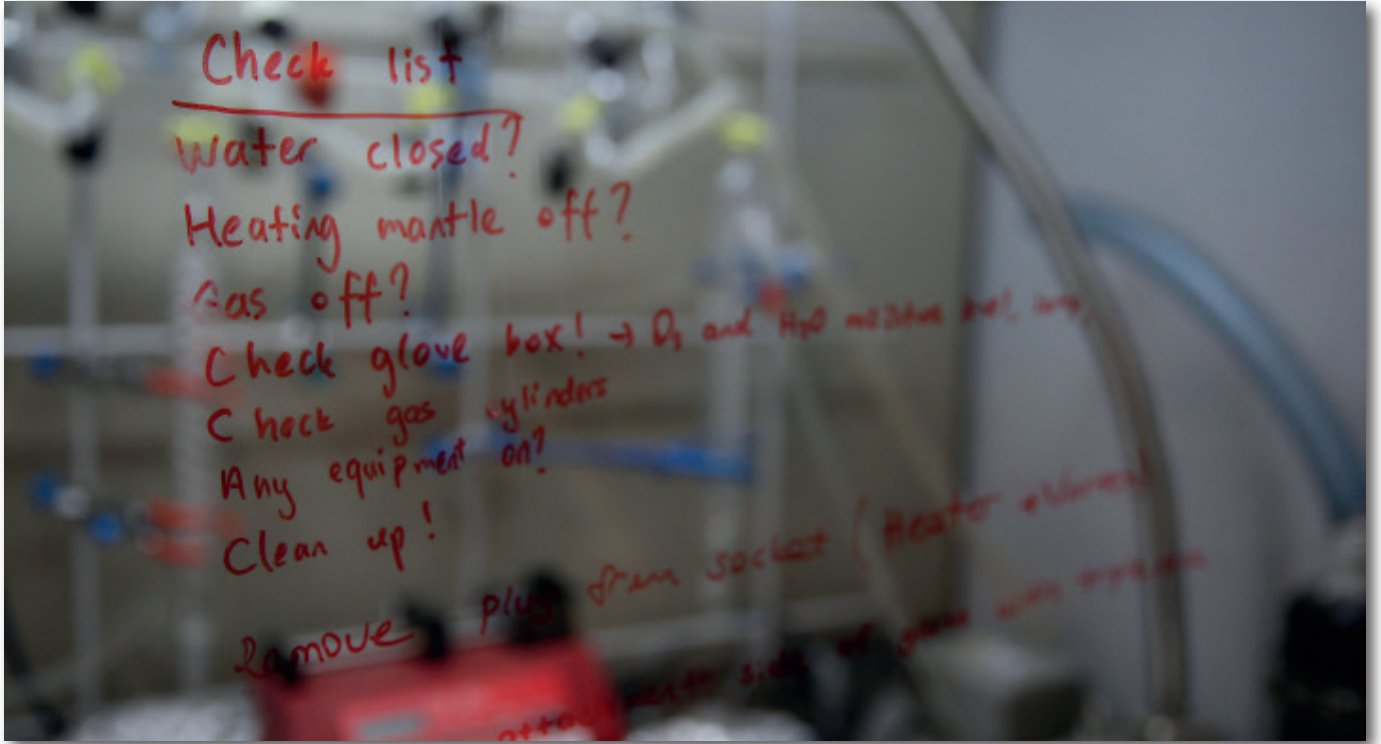 Check list
Water closed?
Heating mantle off?
Gas off?
Check glove box! → O₂ and H₂O
Check gas cylinders
Any equipment on?
Clean up!
Remove plug from socket (Heater
side of glove